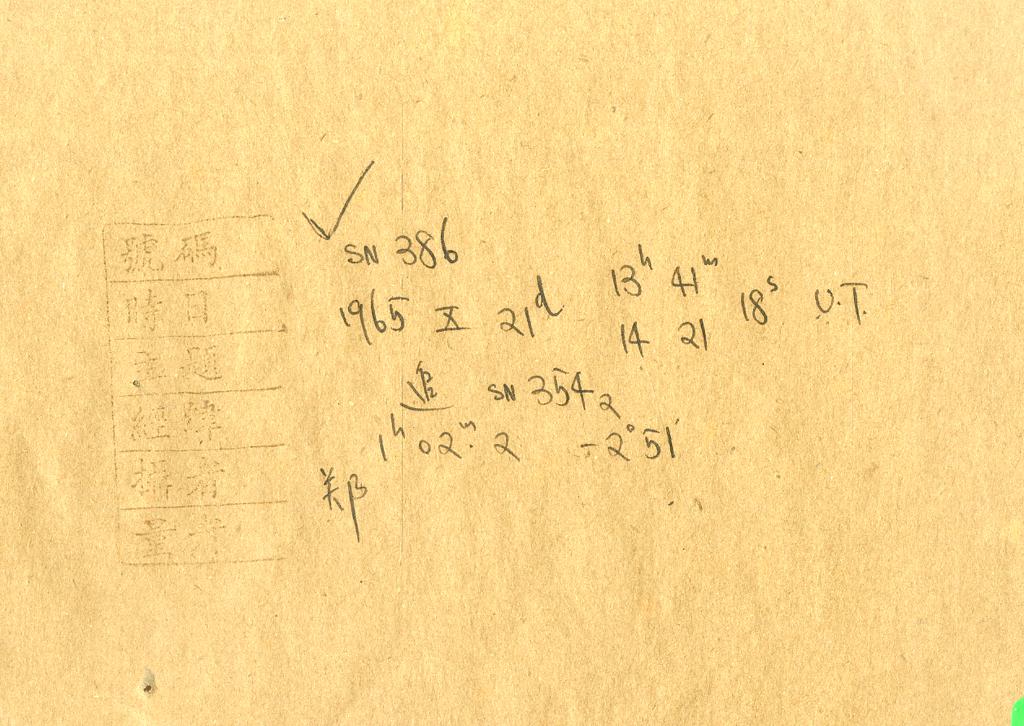 號碼
時日
主題
經緯
攝者
量者
SN 386
1965 X 21ᵈ 13ʰ 41ᵐ 18ˢ U.T.
14 21
追 SN 354₂
1ʰ 02ᵐ.2 -2°51'
郑